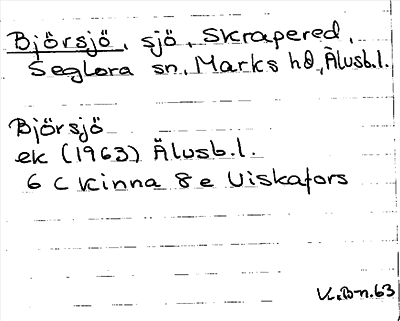 Björsjö, sjö, Skrapered,
Seglora sn, Marks hd, Älvsb.l.
Björsjö
ek (1963) Älvsb.l.
6 C Kinna 8 e Viskafors
V.B-n.63